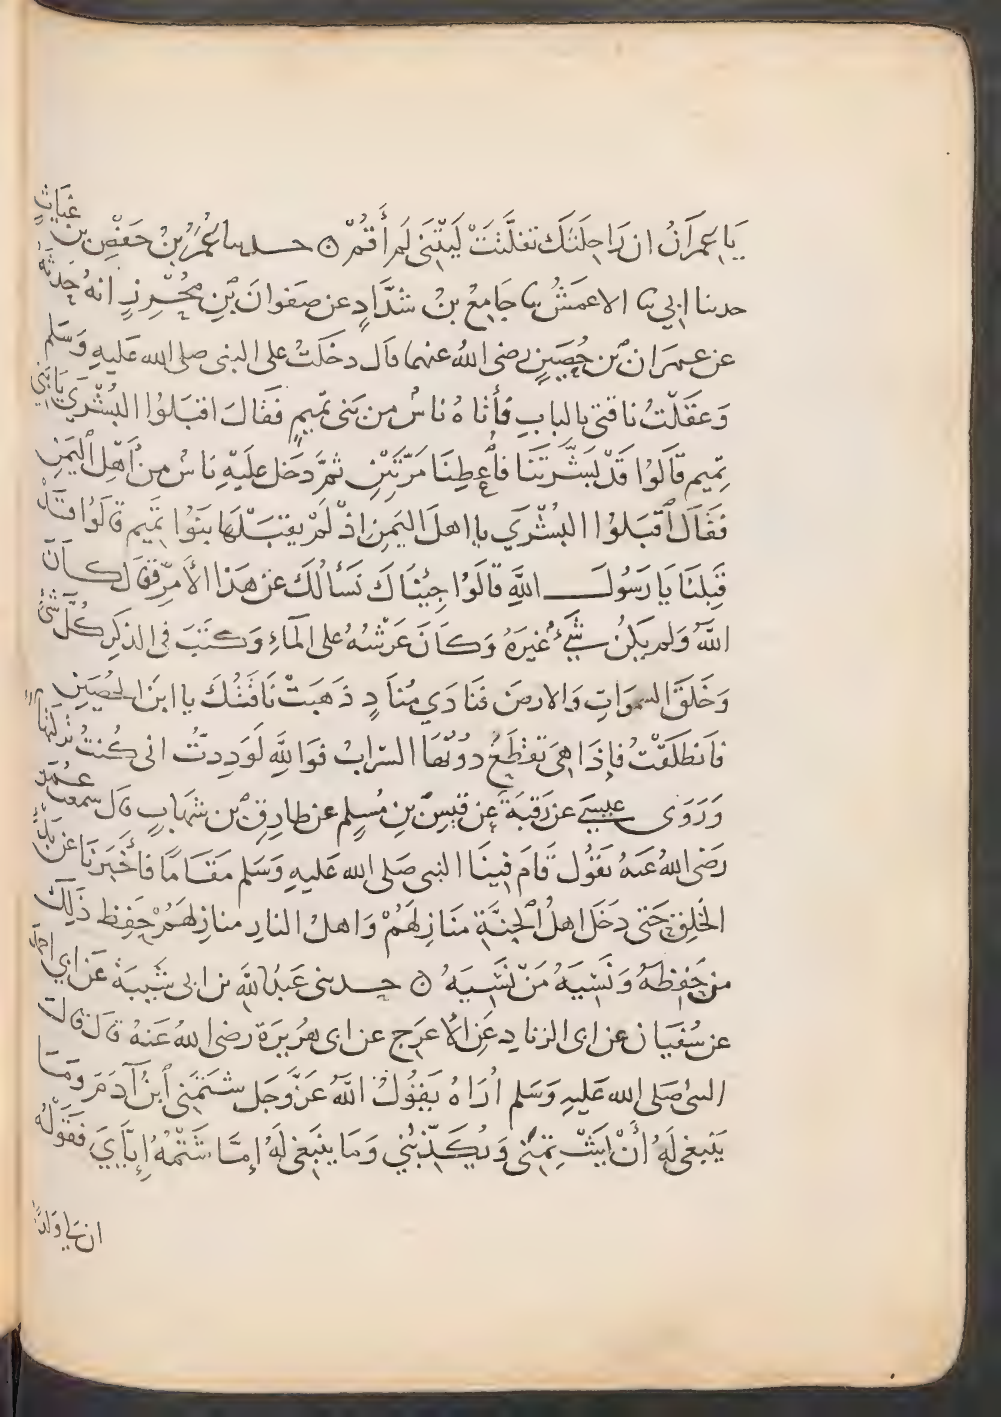 يَا عِمْرَانُ ان رَاحِلَتَكَ تفلَّتَتْ لَيْتَنِى لَم أَقُمْ ۞ حدثنا عُمَرُ بْنُ حَفْصِ بْن غِيَاثٍ
حدثنا ابي نا الاعمَشُ نا جَامِعُ بْنُ شدَّادٍ عن صَفوانَ بْنِ مُحْرِزٍ انهُ حَدثهُ
عن عمرَان بْن حُصَينٍ رضى اللهُ عنهما قال دخَلتُ على النبى صلى الله عَليهِ وَسَلم
وَعقَلْتُ ناقتى بالبابِ فأتاهُ ناسٌ من بَنى تميمٍ فَقالَ اقبَلوُا البُشْرَي يَا بَنِي
تميم قَالوُا قَدْ بَشَّرْتَنَا فأَعْطِنَا مَرَّتَيْنِ ثمَّ دَخل عَليْهِ نَاسٌ مِن أَهْلِ اليَمَنِ
فقَال اقْبَلوُا البُشْرَي يا اهلَ اليَمَنِ اذْ لَمْ يقبَلْهَا بَنوُا تَميم قَالوُا قَدْ
قَبِلنَا يَا رَسُولَ اللَّهِ قَالوُا جِئْنَاكَ نَسْأَلُكَ عَنْ هَذَا الأَمْرِ قَقَال كَانَ
اللَّهُ وَلم يَكنْ شَيْءٌ غَيْرَهُ وَكَانَ عَرْشُهُ على المَاءِ وَكتَبَ فى الذكِر كُلَّ شَئْ
وَخَلَقَ السمَوَاتِ وَالارضَ فَنَادَي مُنَادٍ ذَهَبَتْ نَاقَتُكَ يا ابنَ الحُصَينِ
فَانطلَقْتُ فإذَا هِيَ تَقْطَعُ دُونَهَا السَّرابُ فَوَاللَّهِ لَوَدِدتُ انى كُنتُ تركتُهَا
وَرَوَى عيسَي عن رَقَبَةَ عن قيْسِ بْنِ مُسْلِمٍ عن طارِق بْن شهَابٍ قال سمعت عُمَر
رَضىَ اللهُ عَنهُ يَقُول قَامَ فِينَا النبى صَلى الله عَليهِ وَسَلم مَقَامًا فَأخْبَرَنَا عَن بَدْءِ
الخَلِقِ حَتى دَخَلَ اهلُ الجنَّةِ مَنَازِلهَمْ وَاهلُ النارِ منازِلهَمْ حَفِظَ ذَلِكَ
مَن حَفِظهُ وَنَسِيَهُ مَنْ نَسِيَهُ ۞ حدثنى عَبدُ اللَّهِ بن ابى شَيبَةَ عَن ابي احمدَ
عن سُفيَان عن ابى الزنادِ عَنِ الأعرَج عن ابى هرَيرَة رضى اللهُ عَنهُ قال قالَ
النبىُ صَلى الله عَليهِ وَسَلم أُرَاهُ يَقوُلُ اللَّهُ عَزَّ وَجَل شَتَمَنِى ابنُ آدَمَ وَمَا
يَنبَغى لَهُ أَنْ يَشْتِمَنِى وَيُكَذِّبُنِي وَمَا يَنبَغى لَهُ إمَّا شَتْمُهُ إيَّايَ فَقَوْلُهُ
ان لي وَلدًا